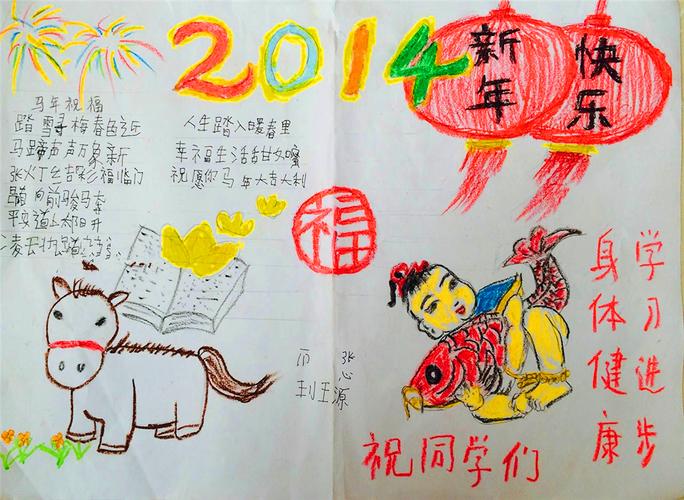 2014
新年
快乐
马年祝福
踏雪寻梅春
马蹄声声万象新
张灯结彩福临门
向前骏马奔
平安道上太阳升
凌云壮志踏
人生踏入暖春里
幸福生活甜如蜜
祝愿你马年大吉大利
福
张
祝同学们
学习进步
身体健康